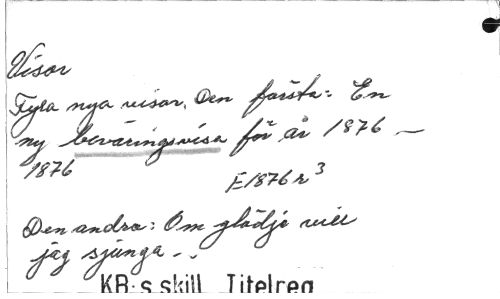 Visor
Fyra nya visor. Den första: En
ny beväringsvisa för år 1876 —
1876
E1876 r³
Den andra: Om glädje vill
jag sjunga...
KB:s skill. Titelreg